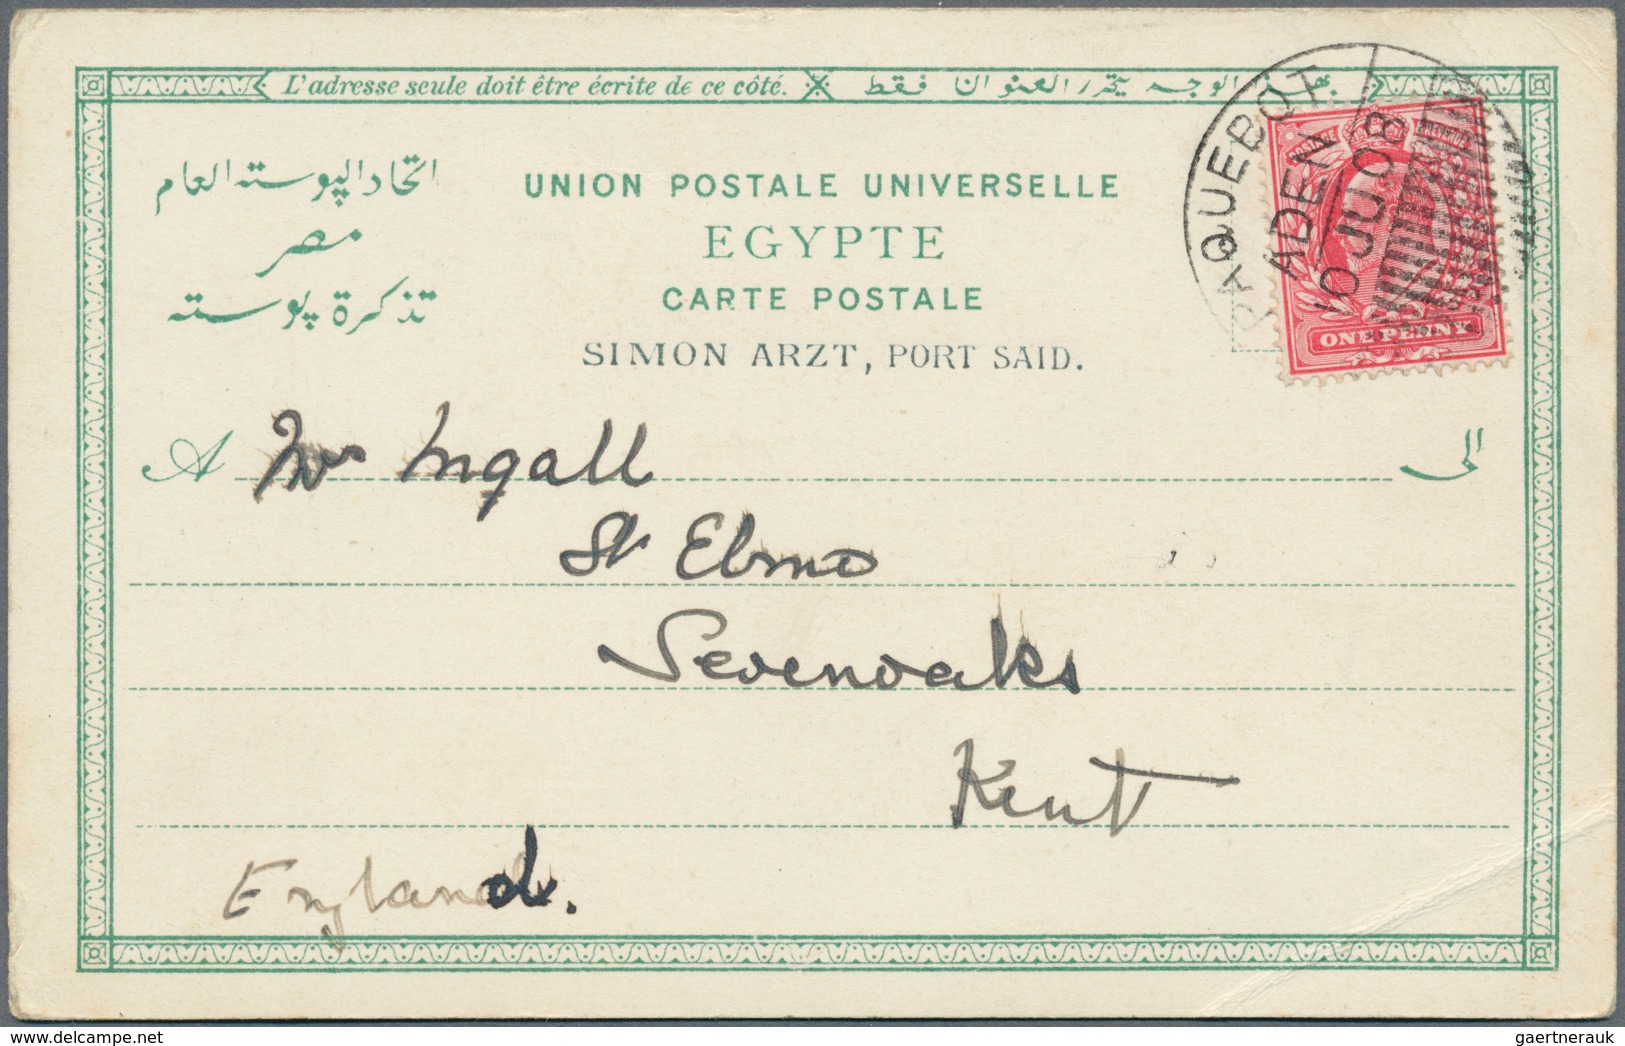 L'adresse seule doit être écrite de ce côté.
بهذا الوجه يحرر العنوان فقط
اتحاد البوسته العام
مصر
تذكرة بوسته
UNION POSTALE UNIVERSELLE
EGYPTE
CARTE POSTALE
SIMON ARZT, PORT SAID.
PAQUEBOT
ADEN
10 JU 08
POSTAGE
ONE PENNY
A Mrs Ingall الى
St Elmo
Sevenoaks
Kent
England.
www.delcampe.net
gaertnerauk